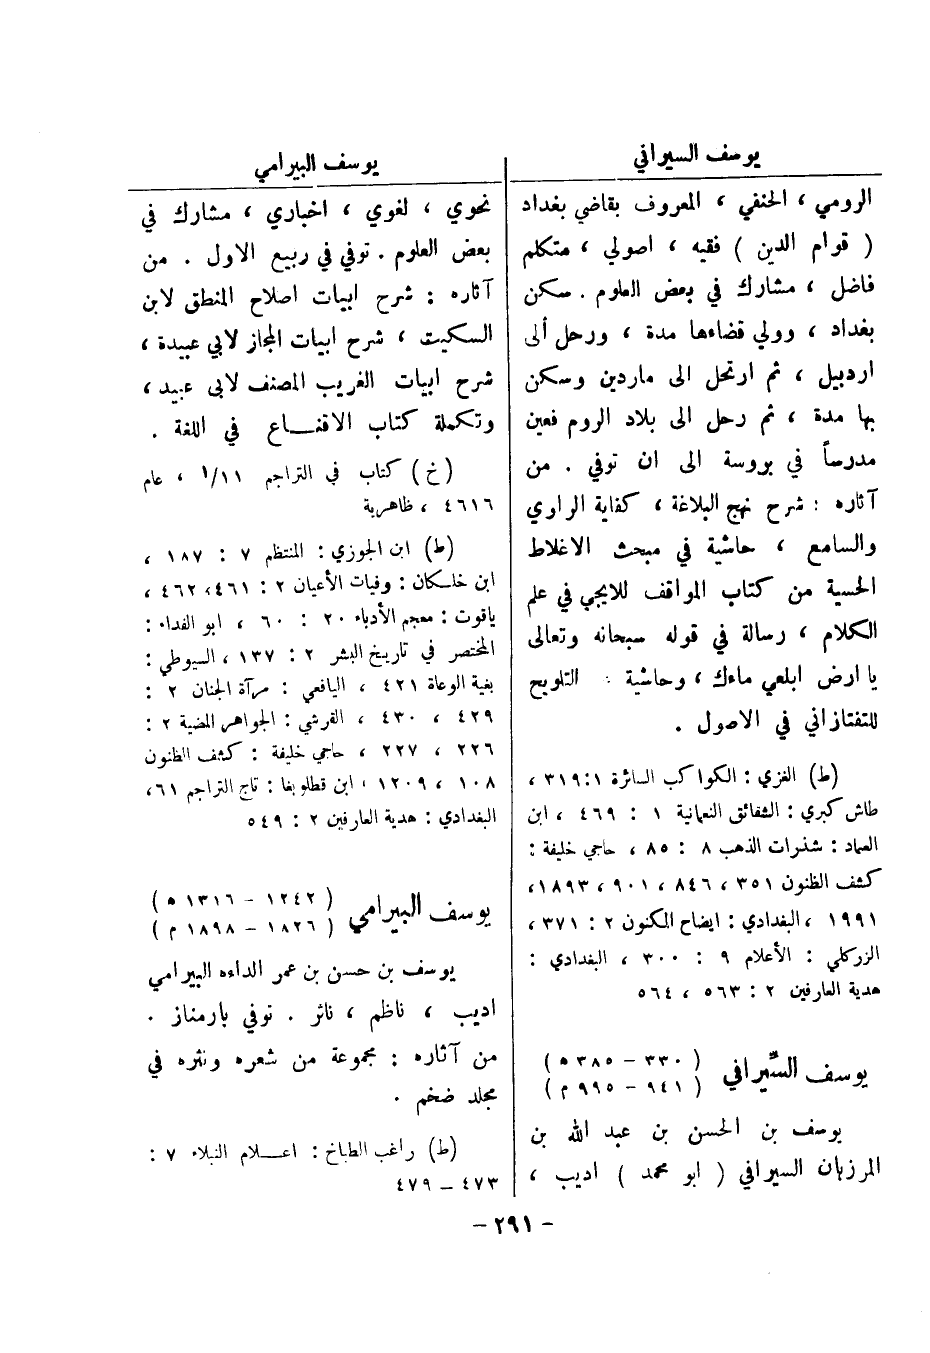 يوسف السيرافي
الرومي ، الحنفي ، المعروف بقاضي بغداد
( قوام الدين ) فقيه ، اصولي ، متكلم
فاضل ، مشارك في بعض العلوم . سكن
بغداد ، وولي قضاءها مدة ، ورحل ألى
اردبيل ، ثم ارتحل الى ماردين وسكن
بها مدة ، ثم رحل الى بلاد الروم فعين
مدرساً في بروسة الى ان توفي . من
آثاره : شرح نهج البلاغة ، كفاية الراوي
والسامع ، حاشية في مبحث الاغلاط
الحسية من كتاب المواقف للايجي في علم
الكلام ، رسالة في قوله سبحانه وتعالى
يا ارض ابلعي ماءك ، وحاشية التلويح
للتفتازاني في الاصول .
(ط) الغزي : الكواكب السائرة ١ : ٣١٩ ،
طاش كبري : الشقائق النعمانية ١ : ٤٦٩ ، ابن
العماد : شذرات الذهب ٨ : ٨٥ ، حاجي خليفة :
كشف الظنون ٣٥١ ، ٨٤٦ ، ٩٠١ ، ١٨٩٣ ،
١٩٩١ ، البغدادي : ايضاح المكنون ٢ : ٣٧١ ،
الزركلي : الأعلام ٩ : ٣٠٠ ، البغدادي :
هدية العارفين ٢ : ٥٦٣ ، ٥٦٤
يوسف السّيرافي ( ٣٣٠ - ٣٨٥ ه )
( ٩٤١ - ٩٩٥ م )
يوسف بن الحسن بن عبد الله بن
المرزبان السيرافي ( ابو محمد ) اديب ،
يوسف البيرامي
نحوي ، لغوي ، اخباري ، مشارك في
بعض العلوم . توفي في ربيع الاول . من
آثاره : شرح ابيات اصلاح المنطق لابن
السكيت ، شرح ابيات المجاز لابي عبيدة ،
شرح ابيات الغريب المصنف لابى عبيد ،
وتكملة كتاب الاقنــاع في اللغة .
(خ) كتاب في التراجم ١١/١ ، عام
٤٦١٦ ، ظاهرية
(ط) ابن الجوزي : المنتظم ٧ : ١٨٧ ،
ابن خلكان : وفيات الأعيان ٢ : ٤٦١ ، ٤٦٢ ،
ياقوت : معجم الأدباء ٢٠ : ٦٠ ، ابو الفداء :
المختصر في تاريخ البشر ٢ : ١٣٧ ، السيوطي :
بغية الوعاة ٤٢١ ، اليافعي : مرآة الجنان ٢ :
٤٢٩ ، ٤٣٠ ، القرشي : الجواهر المضية ٢ :
٢٢٦ ، ٢٢٧ ، حاجي خليفة : كشف الظنون
١٠٨ ، ١٢٠٩ ، ابن قطلوبغا : تاج التراجم ٦١ ،
البغدادي : هدية العارفين ٢ : ٥٤٩
يوسف البيرامي ( ١٢٤٢ - ١٣١٦ ه )
( ١٨٢٦ - ١٨٩٨ م )
يوسف بن حسن بن عمر الداده البيرامي
اديب ، ناظم ، ناثر . توفي بارمناز .
من آثاره : مجموعة من شعره ونثره في
مجلد ضخم .
(ط) راغب الطباخ : اعــلام النبلاء ٧ :
٤٧٣ - ٤٧٩
- ٢٩١ -